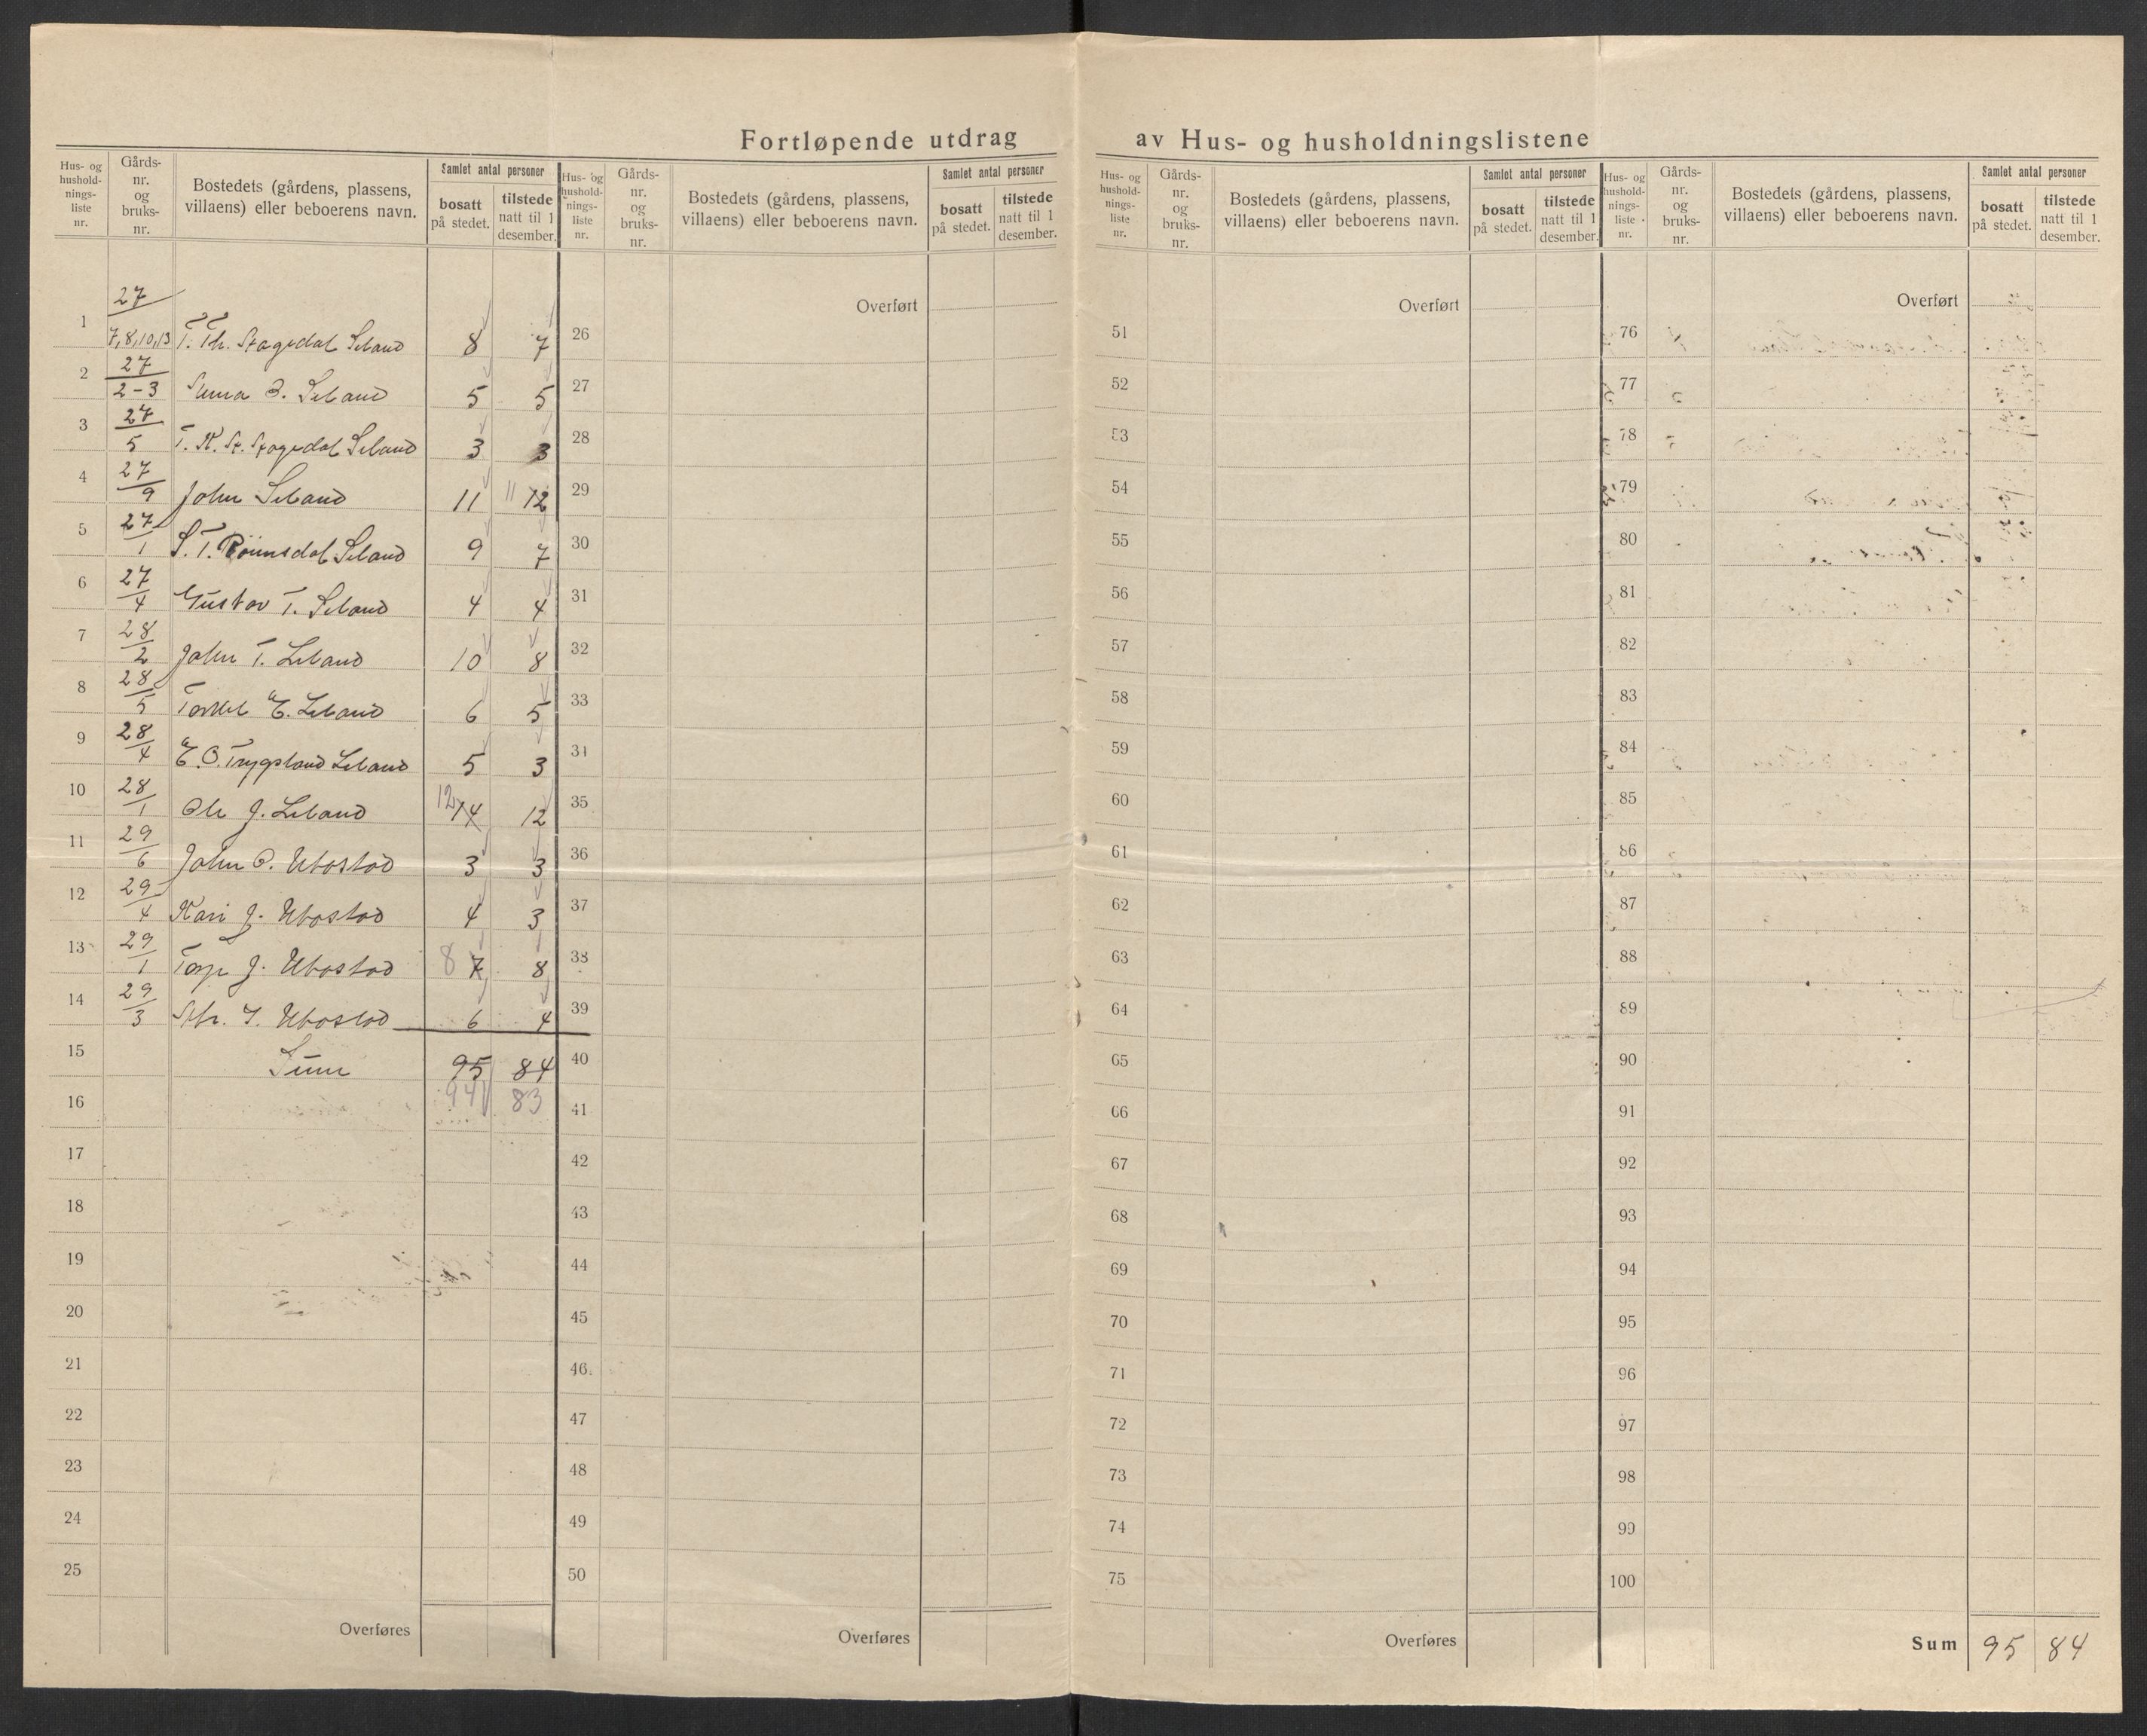 Fortløpende utdrag av Hus- og husholdningslistene
Hus- og hushold-nings-liste nr. Gårds-nr. og bruks-nr. Bostedets (gårdens, plassens, villaens) eller beboerens navn. Samlet antal personer bosatt på stedet. tilstede natt til 1 desember.
Hus- og hushold-nings-liste nr. Gårds-nr. og bruks-nr. Bostedets (gårdens, plassens, villaens) eller beboerens navn. Samlet antal personer bosatt på stedet. tilstede natt til 1 desember.
Hus- og hushold-nings-liste nr. Gårds-nr. og bruks-nr. Bostedets (gårdens, plassens, villaens) eller beboerens navn. Samlet antal personer bosatt på stedet. tilstede natt til 1 desember.
Hus- og hushold-nings-liste nr. Gårds-nr. og bruks-nr. Bostedets (gårdens, plassens, villaens) eller beboerens navn. Samlet antal personer bosatt på stedet. tilstede natt til 1 desember.
Overført Overført Overført
1 27/7,8,10,13 T. Th. Seland 8 7 26 51 76
2 27/2-3 Seland 5 5 27 52 77
3 27/5 Seland 3 3 28 53 78
4 27/9 John Seland 11 11 12 29 54 79
5 27/1 S. T. Seland 9 7 30 55 80
6 27/4 Gustav T. Seland 4 4 31 56 81
7 28/2 John T. Leland 10 8 32 57 82
8 28/5 Torkel E. Leland 6 5 33 58 83
9 28/4 E. O. Trygsland Leland 5 3 34 59 84
10 28/1 Ole J. Leland 12 14 12 35 60 85
11 29/6 John O. Ubostad 3 3 36 61 86
12 29/4 Kari J. Ubostad 4 3 37 62 87
13 29/1 J. Ubostad 8 7 8 38 63 88
14 29/3 Ubostad 6 4 39 64 89
15 Sum 95 84 40 65 90
16 94 83 41 66 91
17 42 67 92
18 43 68 93
19 44 69 94
20 45 70 95
21 46 71 96
22 47 72 97
23 48 73 98
24 49 74 99
25 50 75 100
Overføres Overføres Overføres Sum 95 84